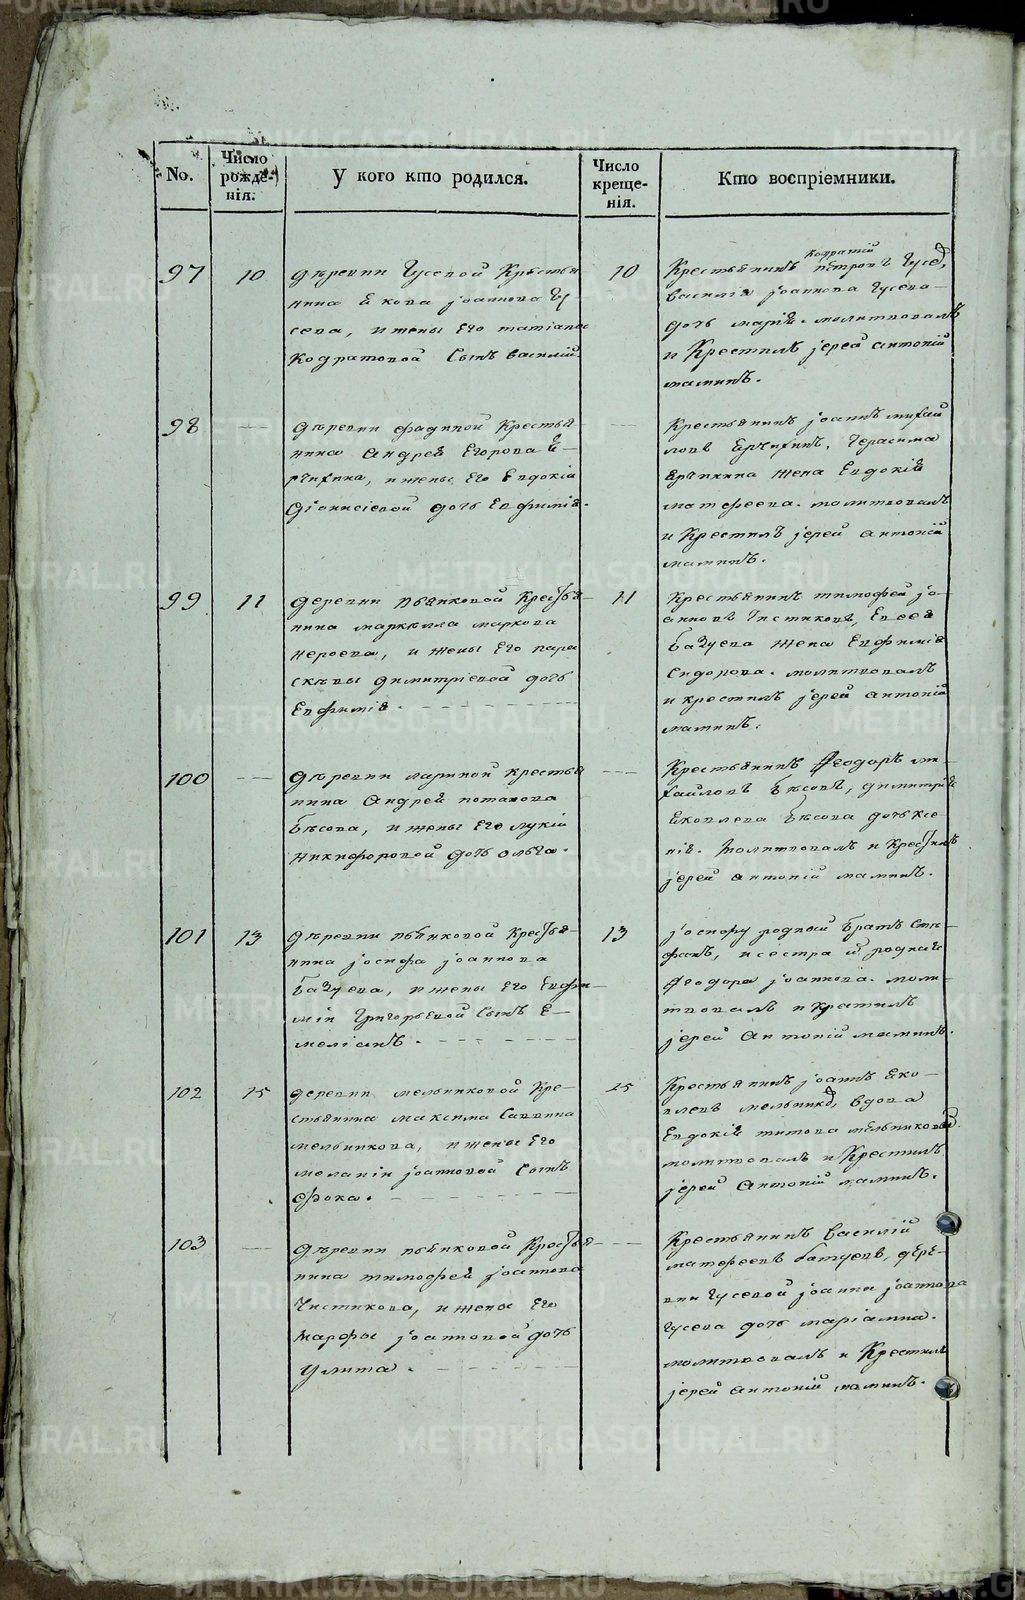 METRIKI.GASO-URAL.RU
No.
Число рожде-нія.
У кого кто родился.
Число креще-нія.
Кто воспріемники.
97
10
деревни Гусевой Крестья
нина Якова Іоаннова Гу
сева, и жены его татіаны
Кодратовой Сынъ василій
10
Кодратій
Крестьянинъ петровъ Гусев,
василія Іоаннова Гусева
дочь марія. молитвовалъ
и Крестилъ іерей антоній
маминъ.
98
деревни фадиной Крестья
нина Андрея Егорова
и жены его Евдокіи
діонисіевой дочь Евфимія.
Крестьянинъ Іоаннъ михай
ловъ Герасима
жена Евдокія
матфеева. молитвовалъ
и Крестилъ іерей антоній
маминъ.
99
11
деревни пьянковой Крестья
нина маркелла маркова
нероева, и жены его пара
скевы димитріевой дочь
Евфимія.
11
Крестьянинъ тимофей Іо
анновъ Чистяковъ, Евсея
Бачуева жена Евфимія
Сидорова. молитвовалъ
и крестилъ іерей антоній
маминъ.
100
деревни лариной крестья
нина Андрея потапова
Бѣсова, и жены его лукіи
никифоровой дочь ольга.
Крестьянинъ Феодоръ ми
хайловъ Бѣсовъ, димитрія
Яковлева Бѣсова дочь ксе
нія. молитвовалъ и Крестилъ
іерей антоній маминъ.
101
13
деревни пьянковой Крестья
нина Іосифа Іоаннова
Бачуева, и жены его Евфи
міи Григорьевой Сынъ Е
меліанъ.
13
Іосифу родный братъ Сте
фанъ, и сестра родная
Феодора Іоаннова. моли
твовалъ и Крестилъ
іерей Антоній маминъ.
102
15
деревни мельниковой Кре
стьянина максима Саввина
мельникова, и жены его
меланіи Іоанновой Сынъ
Фока.
15
Крестьянинъ Іоаннъ Яко
влевъ мельников, вдова
Евдокія титова мельникова.
молитвовалъ и Крестилъ
іерей Антоній маминъ.
103
деревни пьянковой Крестья
нина тимофея Іоаннова
Чистякова, и жены его
марфы Іоанновой дочь
Улита.
Крестьянинъ василій
матфеевъ батуевъ, дере
вни Гусевой Іоанна Іоаннова
Гусева дочь маріамна.
молитвовалъ и Крестилъ
іерей антоній маминъ.